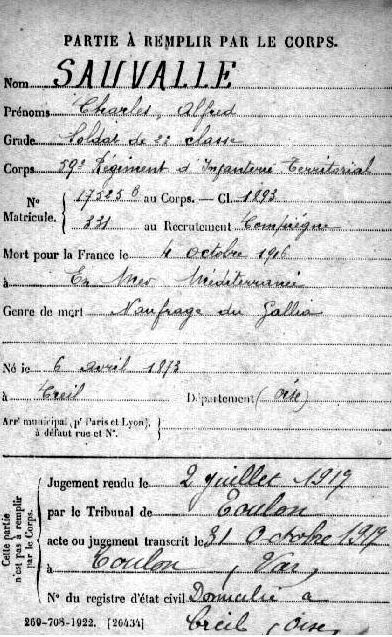 PARTIE À REMPLIR PAR LE CORPS.
Nom SAUVALLE
Prénoms Charles, Alfred
Grade Soldat de 2e classe
Corps 59e Régiment d'Infanterie Territorial
N° Matricule. { 17525 B au Corps. — Cl. 1893
831 au Recrutement Compiègne
Mort pour la France le 4 octobre 1916
à En Mer Méditerranée
Genre de mort Naufrage du Gallia
Né le 6 avril 1873
à Creil Département (Oise)
Arrt municipal (pr Paris et Lyon), à défaut rue et N°. }
Cette partie n'est pas à remplir par le Corps.
Jugement rendu le 2 juillet 1919
par le Tribunal de Toulon
acte ou jugement transcrit le 31 Octobre 1919
à Toulon (Var)
N° du registre d'état civil Domicilié à
Creil (Oise)
269-708-1922. [26434]